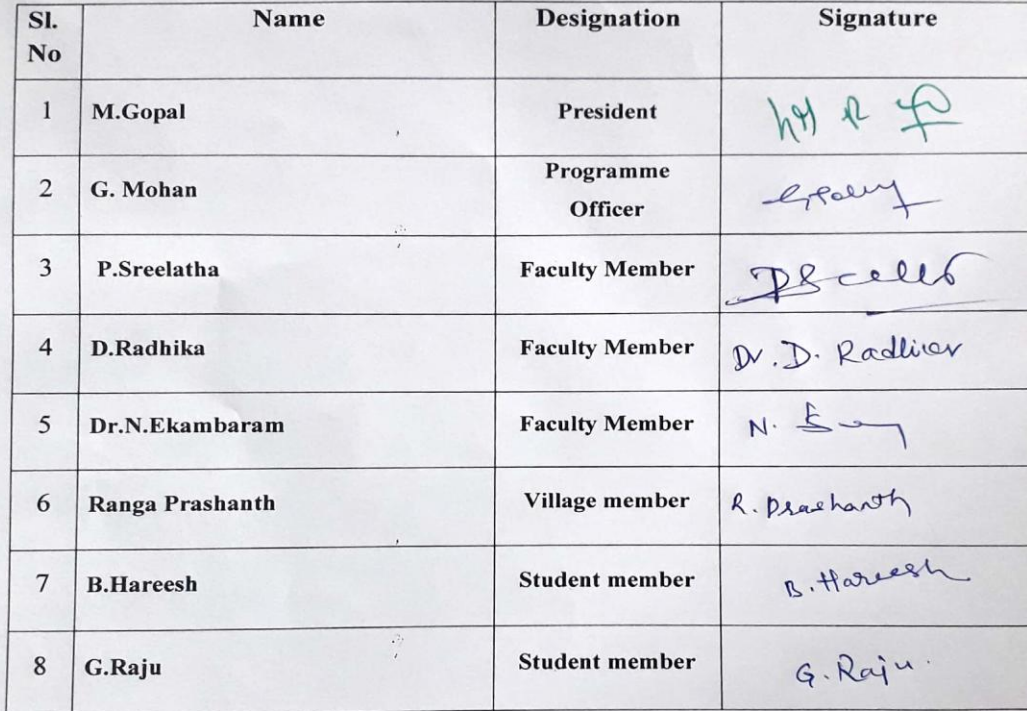 Sl. No Name Designation Signature
1 M.Gopal President
2 G. Mohan Programme Officer
3 P.Sreelatha Faculty Member
4 D.Radhika Faculty Member Dr. D. Radhika
5 Dr.N.Ekambaram Faculty Member N.
6 Ranga Prashanth Village member R. Prashanth
7 B.Hareesh Student member B. Hareesh
8 G.Raju Student member G. Raju.